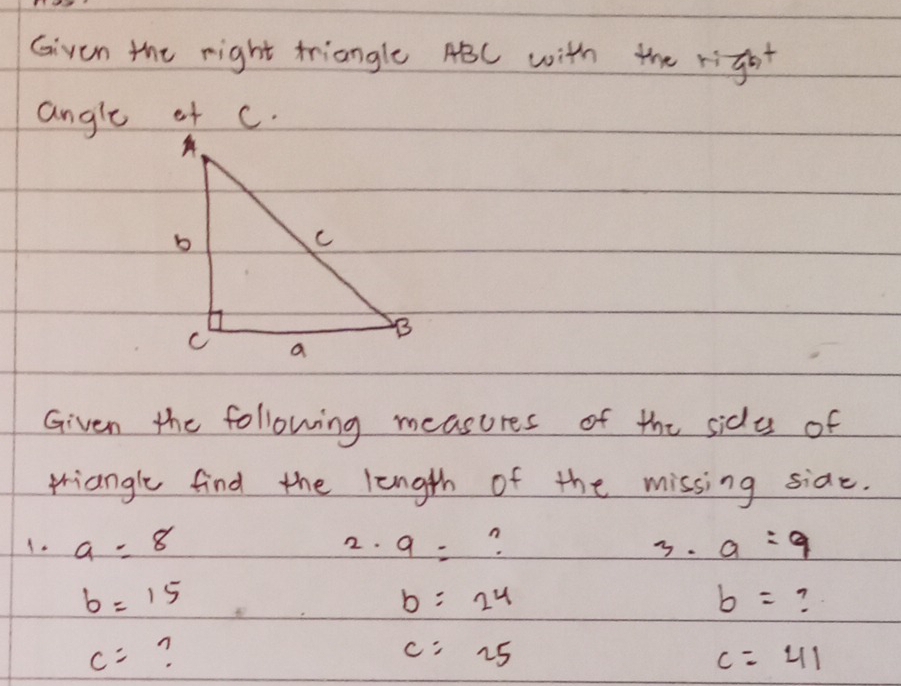 Given the right triangle ABC with the right
angle at C.
A
b
c
C
a
B
Given the following measures of the sides of
triangle find the length of the missing side.
1. a = 8 2. a = ? 3. a = 9
b = 15 b = 24 b = ?
c = ? c = 25 c = 41